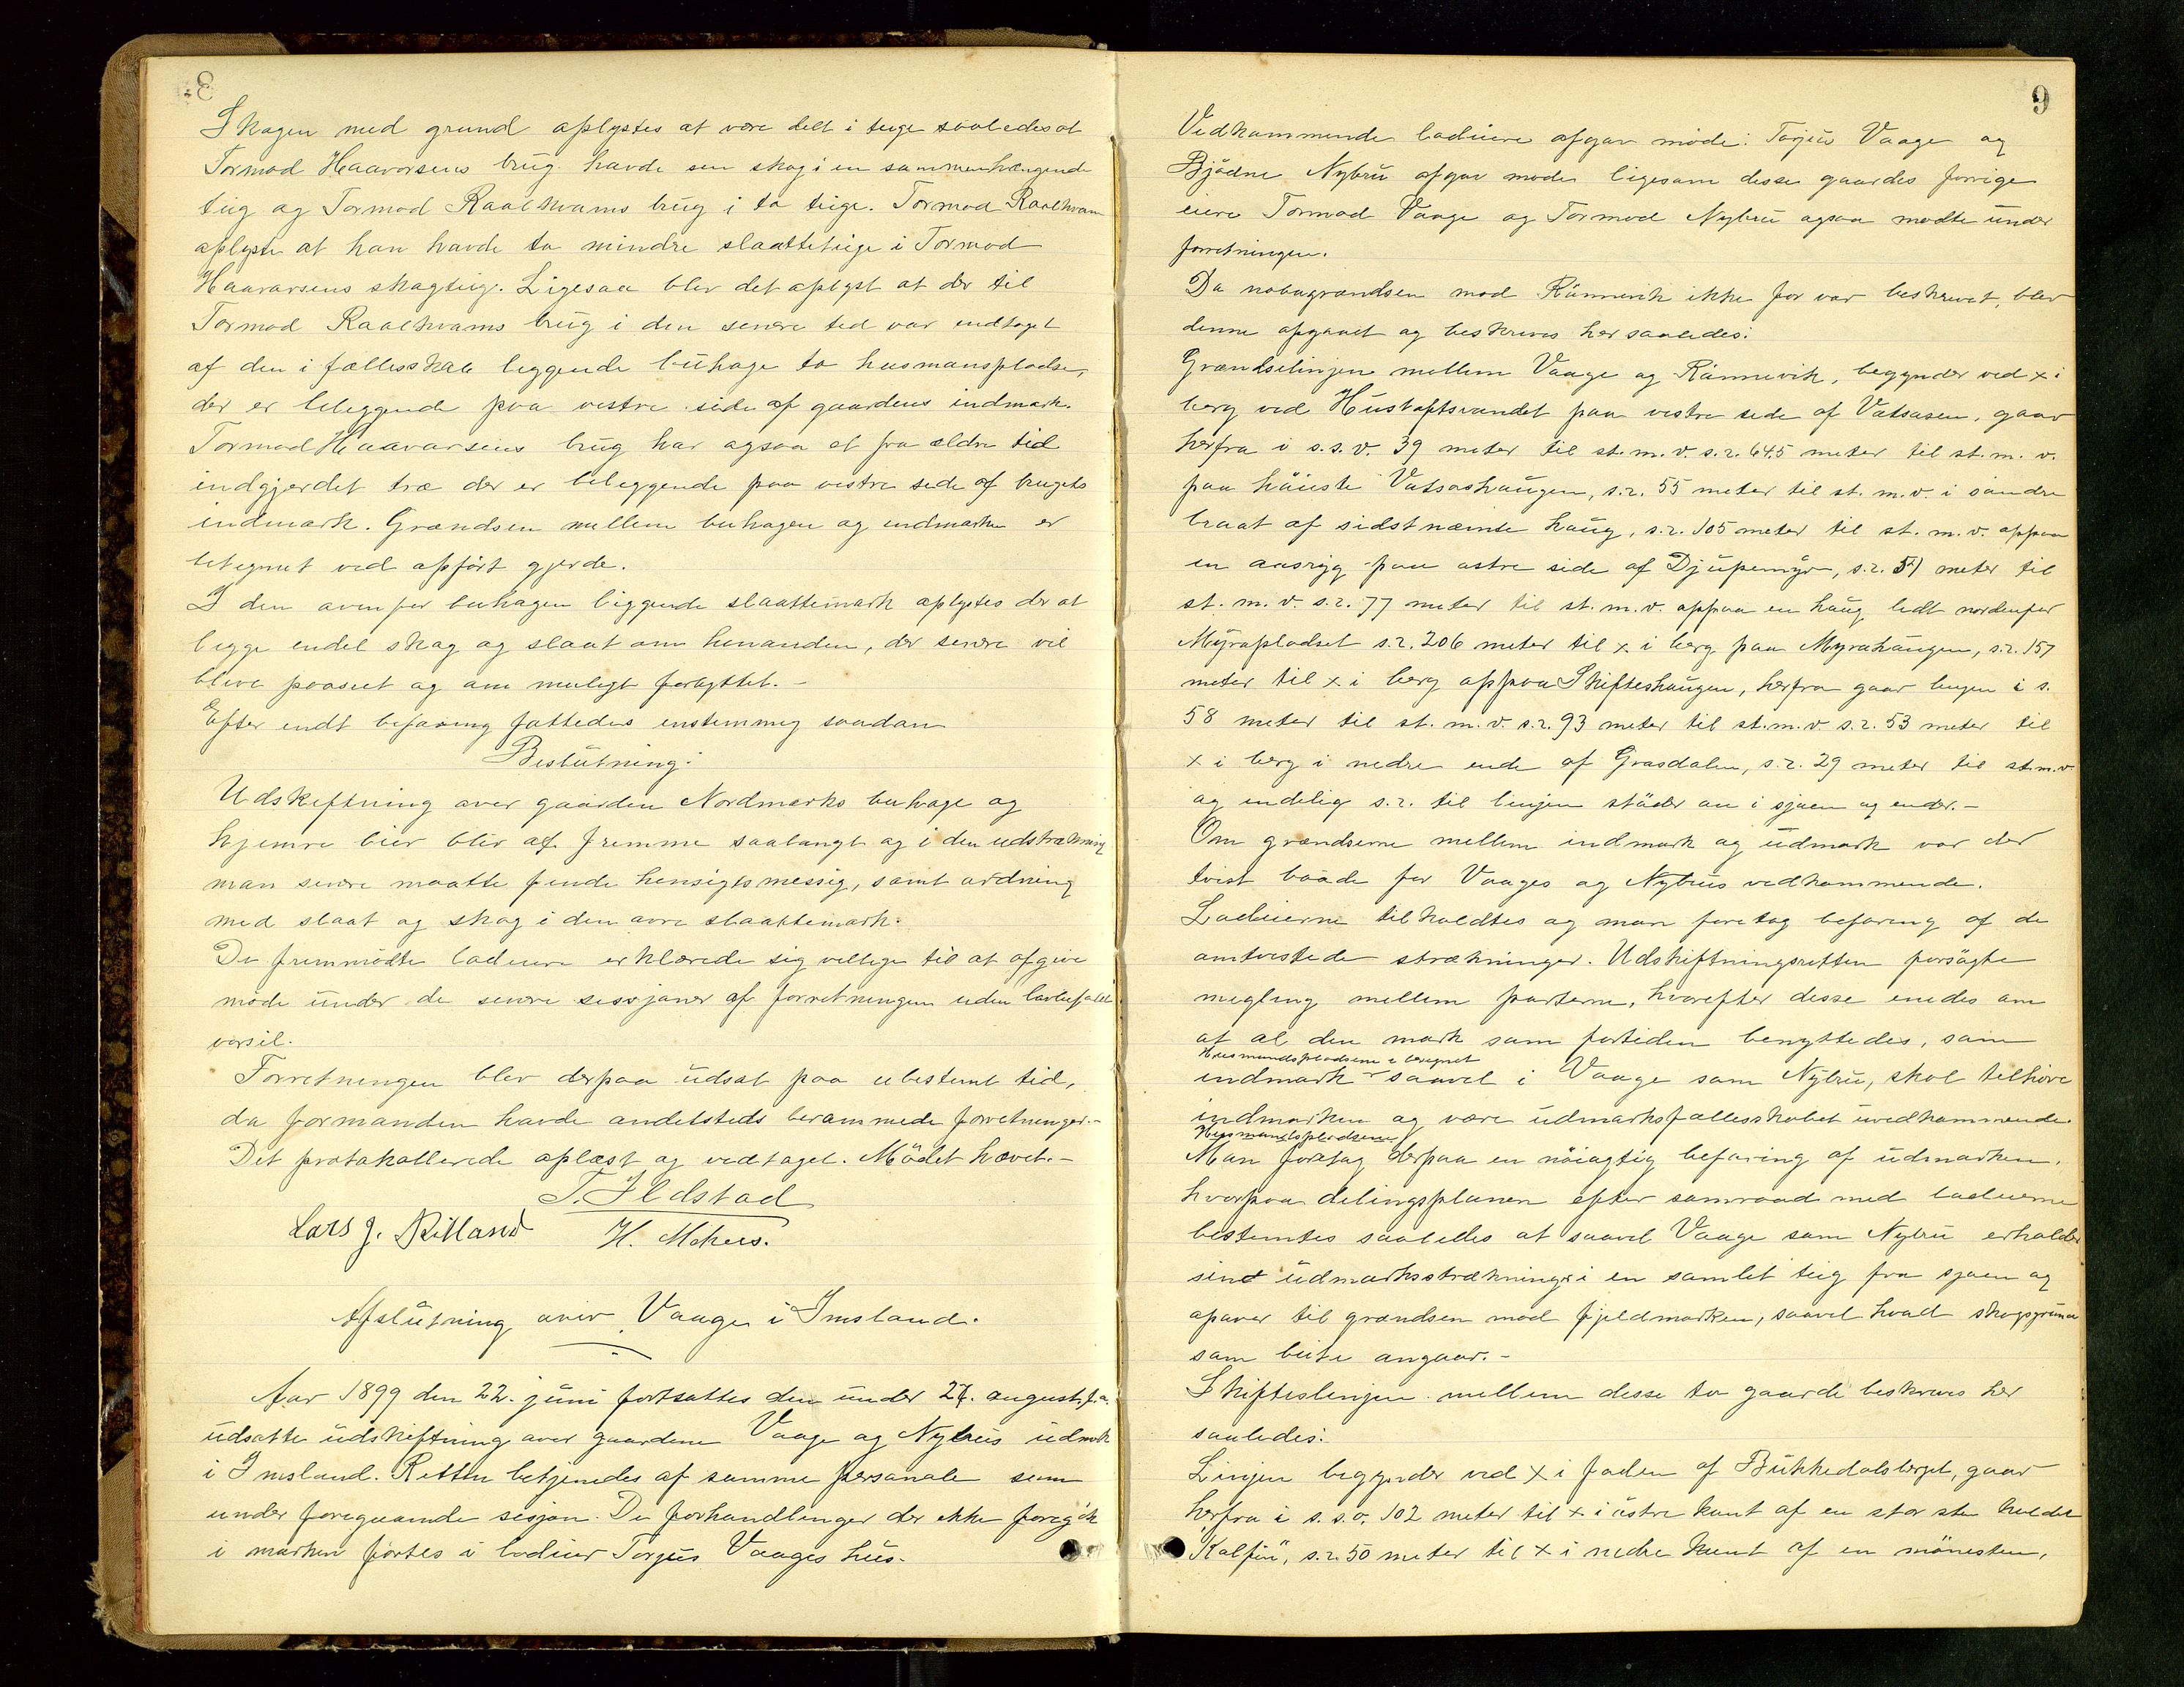 Skogen med grund oplystes at være delt i teige saaledes at
Tormod Haavorsens brug havde sin skog i en sammenhængende
teig og Tormod Raalkvams brug i to teige. Tormod Raalkvam
oplyste at han havde to mindre slaatteteige i Tormod
Haavarsens skogteig. Ligesaa blev det oplyst at der til
Tormod Raalkvams brug i den senere tid var indtaget
af den i fællesskab liggende buhage to husmansplodse,
der er beliggende paa vestre side af gaardens indmark.
Tormod Haavarsens brug har ogsaa et fra ældre tid
indgjerdet træ der er beliggende paa vestre side af brugets
indmark. Grændsen mellem buhagen og indmarken er
betegnet ved opført gjerde.
I den ovenfor buhagen liggende slaattemark oplystes der at
ligge endel skog og slaat om hinanden, der senere vil
blive paaseet og om muligt forbyttet.-
Efter endt befaring fattedes enstemmig saadan
Beslutning:
Udskiftning over gaarden Nordmarks buhage og
hjemre beit blir at fremme saalangt og i den udstrækning
man senere maatte finde hensigtsmessig, samt ordning
med slaat og skog i den øvre slaattemark.
De fremmødte lodeiere erklærede sig villige til at afgive
møde under de senere sessjoner af forretningen uden lovbefalet
varsil.
Forretningen blev derpaa udsat paa ubestemt tid,
da formanden havde andetsteds berammede forretninger.-
Det protokollerede oplæst og vedtaget. Mødet hævet.-
T. Ildstad
Lars J. Rilland H. Mehus.
Afslutning over Vaage i Imsland.
Aar 1899 den 22. juni fortsattes den under 27. august f.a.
udsatte udskiftning over gaardene Vaage og Nybrus udmark
i Imsland. Retten betjenedes af samme personale som
under foregaaende sesjon. De forhandlinger der ikke foregik
i marken førtes i lodeier Torjus Vaages hus.
9
Vedkommende lodeiere afgav møde: Torjus Vaage og
Bjødne Nybru afgav møde ligesom disse gaardes forrige
eiere Tormod Vaage og Tormod Nybru ogsaa mødte under
forretningen.
Da nabogrændsen mod Rønnevik ikke før var beskrevet, blev
denne opgaaet og beskrives her saaledes:
Grændselinjen mellem Vaage og Rønnevik, begynder ved x i
berg ved Hustoftsvandet paa vestre side af Vatsaasen, gaar
herfra i s.s.v. 39 meter til st.m.v. s.r. 64.5 meter til st. m. v.
paa høieste Vatsashaugen, s.r. 55 meter til st. m.v. i søndre
braat af sidstnæmte haug, s.r. 105 meter til st. m. v. oppaa
en aasryg paa østre side af Djupemyr, s.r. 51 meter til
st. m. v. s.r. 77 meter til st. m.v. oppaa en haug lidt nordenfor
Myrapladset s.r. 206 meter til x i berg paa Myrahaugen, s.r. 157
meter til x i berg oppaa Skifteshaugen, herfra gaar linjen i s.
58 meter til st. m. v. s.r. 93 meter til st.m.v. s.r. 53 meter til
x i berg i nedre ende af Grasdalen, s.r. 29 meter til st.m.v.
og endelig s.r. til linjen støder an i sjøen og ender.-
Om grændserne mellem indmark og udmark var der
tvist baade for Vaages og Nybrus vedkommende.
Lodeierne tilholdtes og man foretog befaring af de
omtvistede strækninger. Udskiftningsretten forsøgte
megling mellem parterne, hvorefter disse enedes om
at al den mark som fortiden benyttedes, som
Husmandspladsene iberegnet
indmark saavel i Vaage som Nybru, skal tilhøre
indmarken og være udmarksfællesskabet uvedkommende.
Husmandspladsene
Man foretog derpaa en nøiagtig befaring af udmarken,
hvorpaa delingsplanen efter samraad med lodeierne
bestemtes saaledes at saavel Vaage som Nybru erholder
sine udmarksstrækninger i en samlet teig fra sjøen og
opover til grændsen mod fjeldmarken, saavel hvad skogsgrund
som beite angaar.-
Skifteslinjen mellem disse to gaarde beskrives her
saaledes:
Linjen begynder ved x i foden af Bukkedalsberget, gaar
herfra i s.s.o. 102 meter til x i østre kant af en stor sten kaldet
"Kalfin", s.r. 50 meter til x i nedre kant af en mønesten,